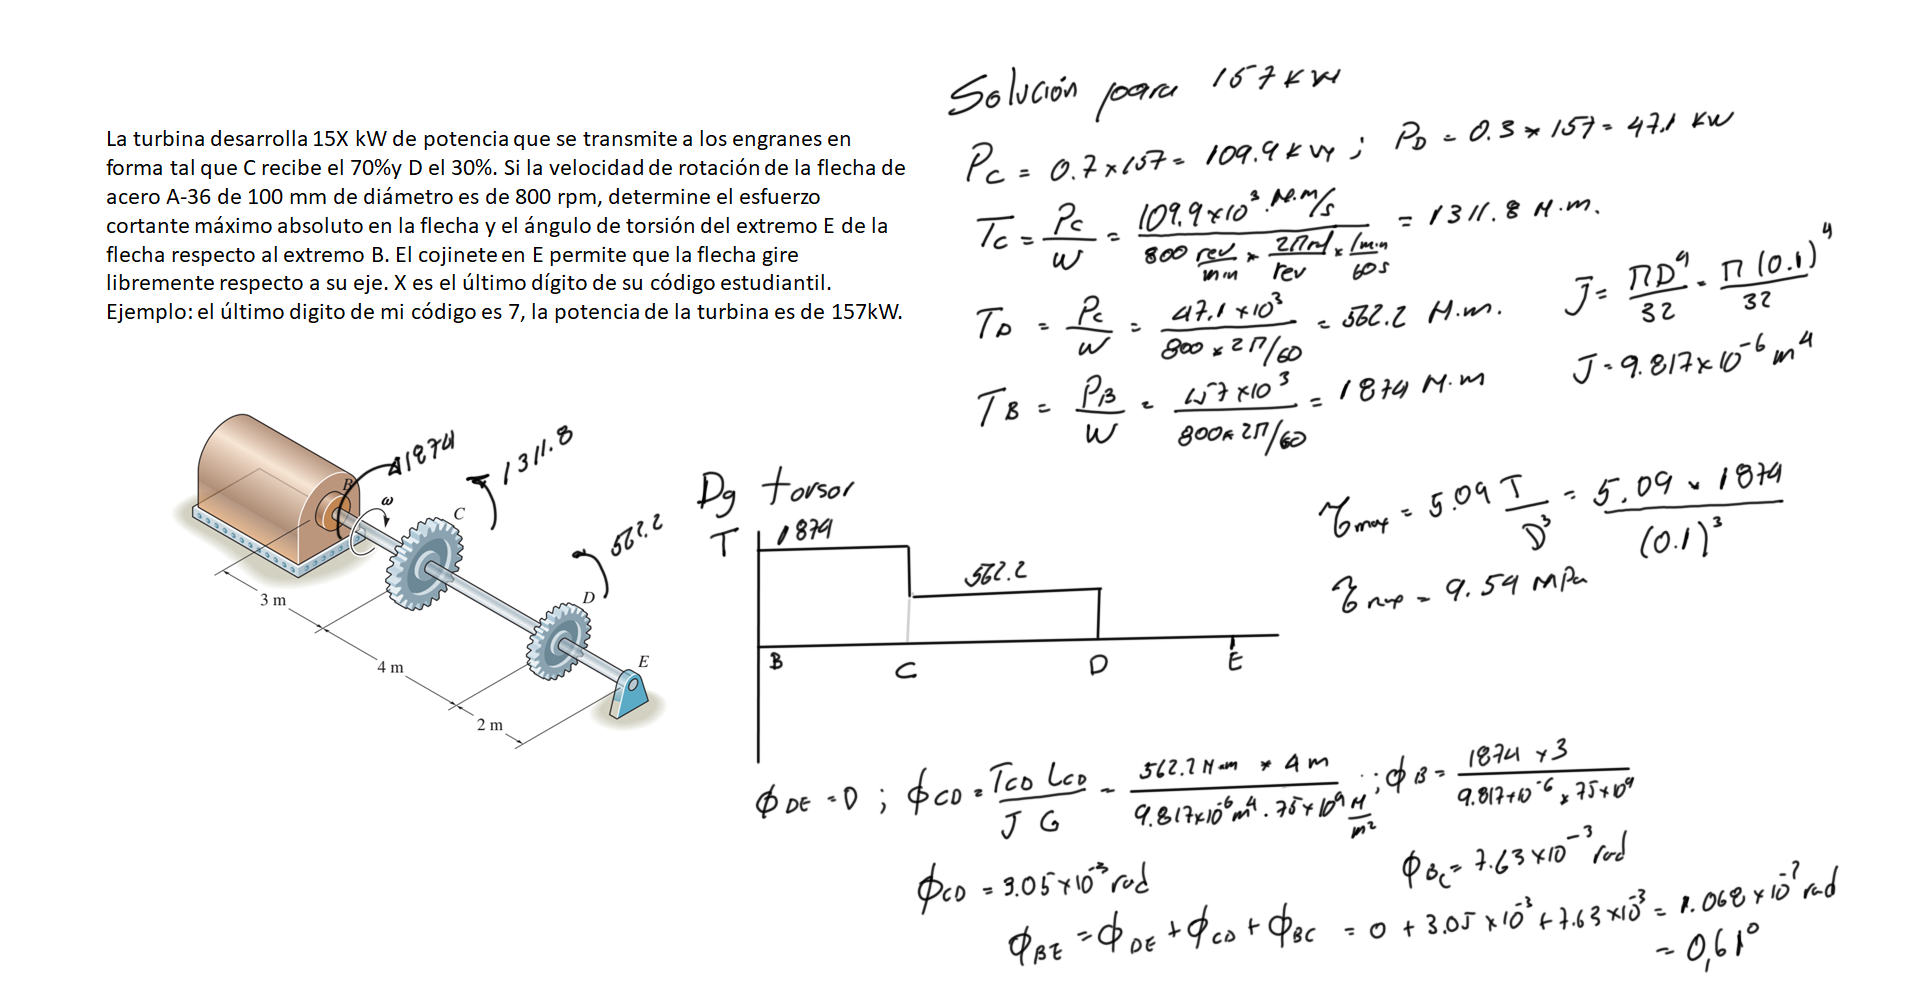 La turbina desarrolla 15X kW de potencia que se transmite a los engranes en
forma tal que C recibe el 70%y D el 30%. Si la velocidad de rotación de la flecha de
acero A-36 de 100 mm de diámetro es de 800 rpm, determine el esfuerzo
cortante máximo absoluto en la flecha y el ángulo de torsión del extremo E de la
flecha respecto al extremo B. El cojinete en E permite que la flecha gire
libremente respecto a su eje. X es el último dígito de su código estudiantil.
Ejemplo: el último digito de mi código es 7, la potencia de la turbina es de 157kW.
Solución para 157 KW
Pc = 0.7 x 157 = 109.9 KW ; PD = 0.3 * 157 = 47.1 KW
Tc = Pc/W = 109.9x10³ N.m/s / (800 rev/min * 2π rad/rev x 1min/60s) = 1311.8 N.m.
TD = Pc/W = 47.1x10³ / (800 x 2π/60) = 562.2 N.m.
J = πD⁴/32 = π(0.1)⁴/32
TB = PB/W = 157x10³ / (800x2π/60) = 1874 N.m
J = 9.817x10⁻⁶ m⁴
1874
1311.8
562.2
B
ω
C
D
E
3 m
4 m
2 m
Dg torsor
T
1874
562.2
B C D E
τmax = 5.09 T/D³ = 5.09 x 1874/(0.1)³
τmax = 9.54 MPa
φDE = 0 ; φCD = TCD LCD/J G = 562.2 N*m * 4m / (9.817x10⁻⁶m⁴ . 75x10⁹ N/m²) ; φB = 1874 x 3 / (9.817x10⁻⁶ x 75x10⁹)
φCD = 3.05x10⁻³ rad
φBC = 7.63x10⁻³ rad
φBE = φDE + φCD + φBC = 0 + 3.05x10⁻³ + 7.63x10⁻³ = 1.068x10⁻² rad
= 0,61°